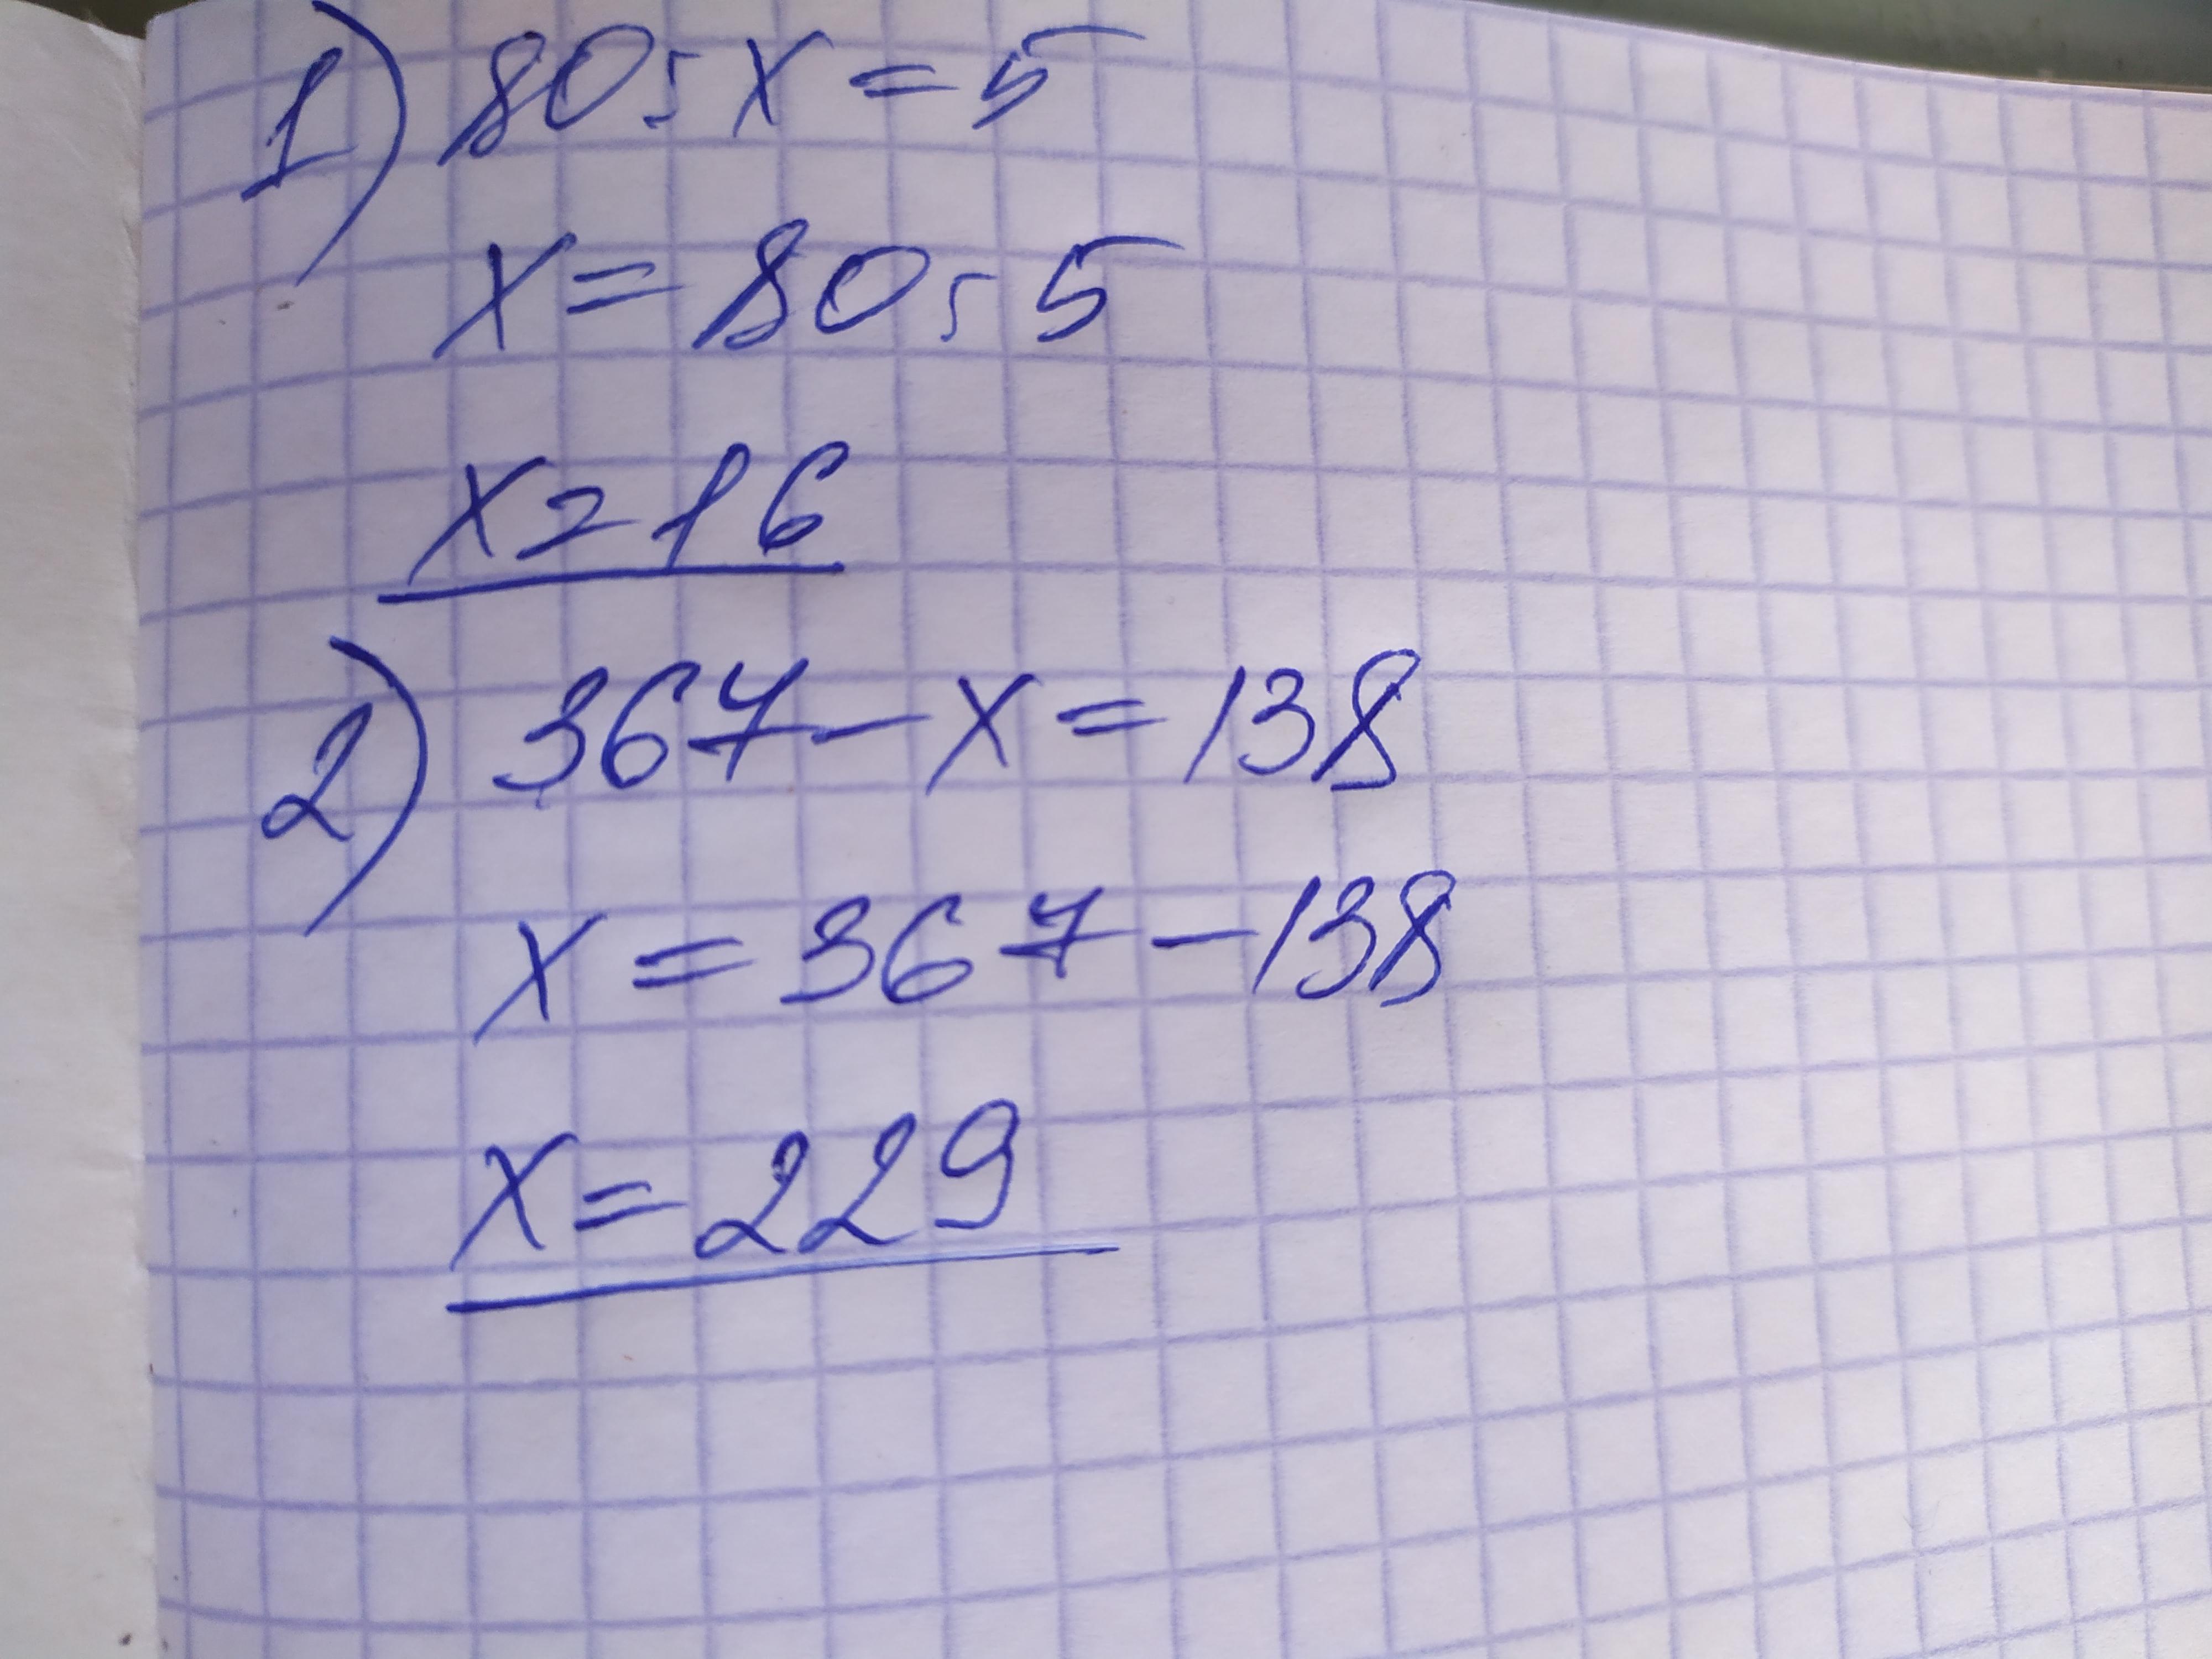 1) 80 : x = 5
x = 80 : 5
x = 16
2) 367 - x = 138
x = 367 - 138
x = 229